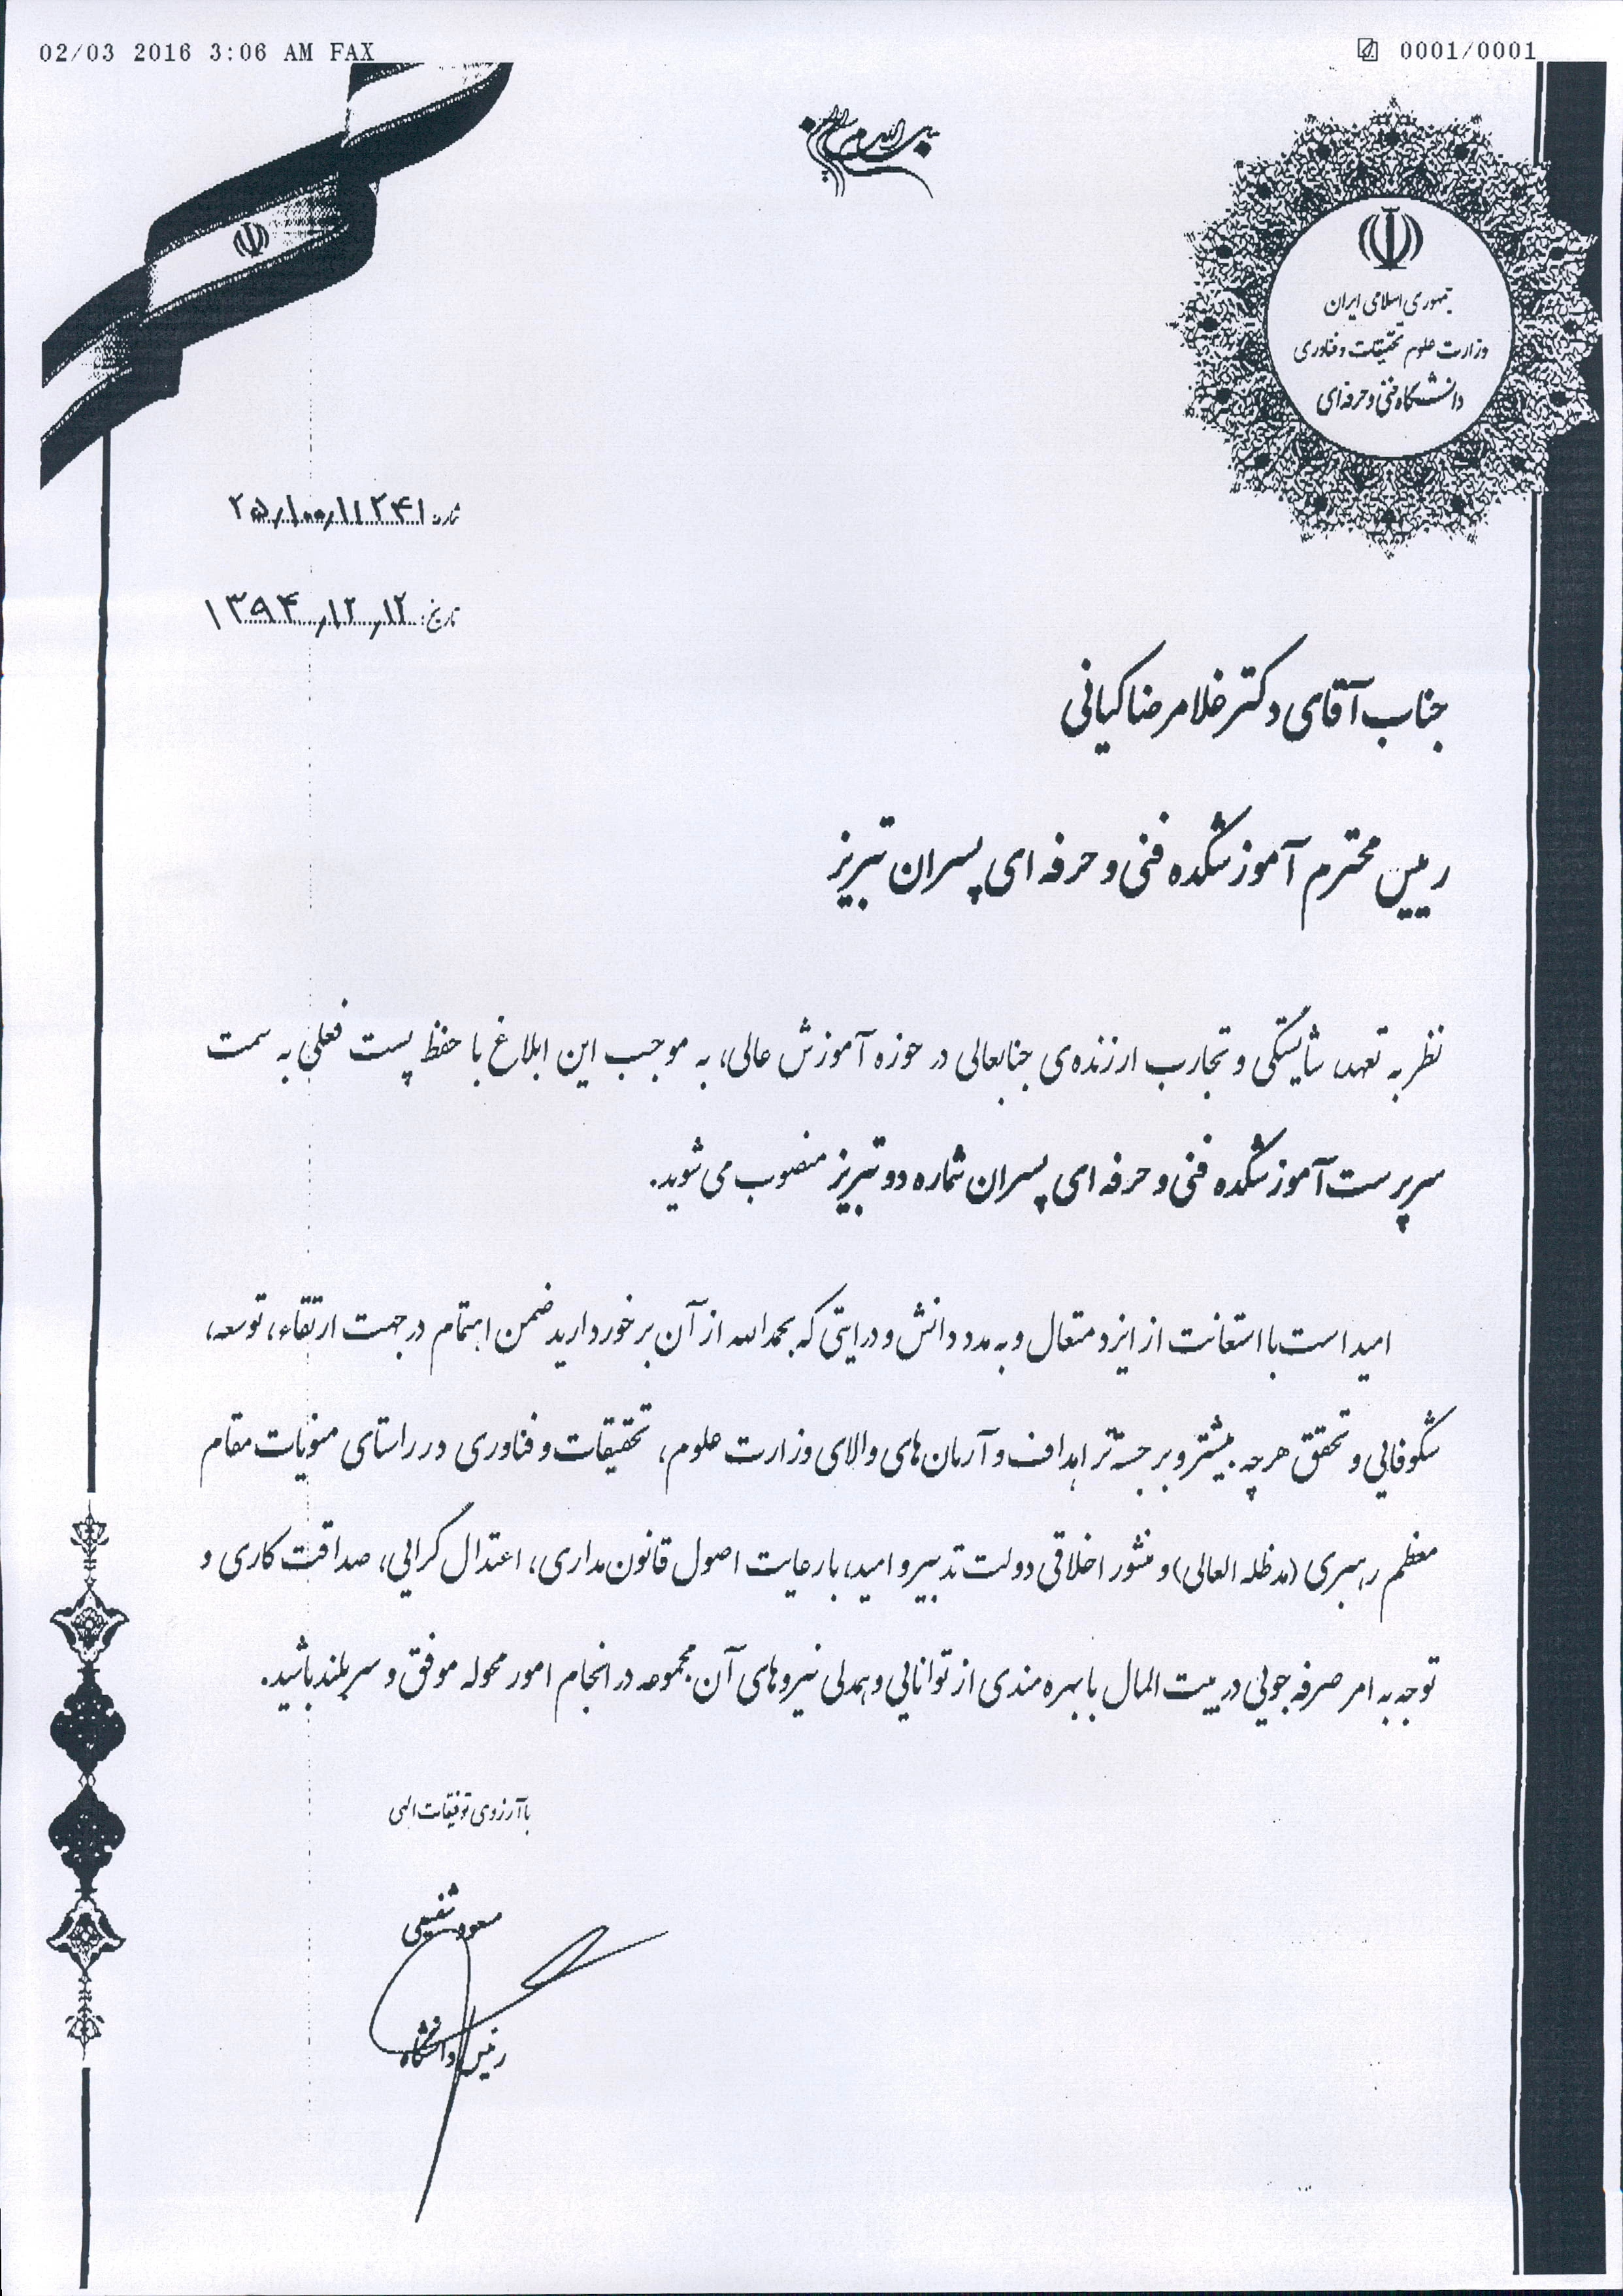 02/03 2016 3:06 AM FAX
0001/0001
جمهوری اسلامی ایران
وزارت علوم تحقیقات و فناوری
دانشگاه فنی و حرفه‌ای
شماره: ۲۵/۱۰۰/۱۱۲۴۱
تاریخ: ۱۳۹۴/۱۲/۱۲
جناب آقای دکتر غلامرضا کیانی
رییس محترم آموزشکده فنی و حرفه ای پسران تبریز
نظر به تعهد، شایستگی و تجارب ارزنده‌ی جنابعالی در حوزه آموزش عالی، به موجب این ابلاغ با حفظ پست فعلی به سمت
سرپرست آموزشکده فنی و حرفه ای پسران شماره دو تبریز منصوب می شوید.
امید است با استعانت از ایزد متعال و به مدد دانش و درایتی که بحمدالله از آن برخوردارید ضمن اهتمام در جهت ارتقاء، توسعه،
شکوفایی و تحقق هرچه بیشتر و برجسته‌تر اهداف و آرمان های والای وزارت علوم، تحقیقات و فناوری در راستای منویات مقام
معظم رهبری (مدظله العالی) و منشور اخلاقی دولت تدبیر و امید، با رعایت اصول قانون مداری، اعتدال گرایی، صداقت کاری و
توجه به امر صرفه جویی در بیت المال با بهره مندی از توانایی و همدلی نیروهای آن مجموعه در انجام امور محوله موفق و سربلند باشید.
با آرزوی توفیقات الهی
مسعود شفیعی
رئیس دانشگاه